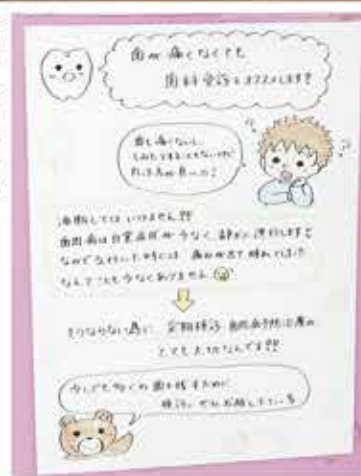 歯が痛くなくても
歯科受診をオススメします!!
歯も痛くないし、
しみたりすることもないけど
行った方が良いの?
油断してはいけません!!
歯周病は自覚症状が少なく静かに進行します
なので気付いた時には 歯の が 腫れてしまった
なんてことも少なくありません
そうならない為に 定期検診 歯周病予防治療が
とても大切なんです!!
少しでも多くの歯を残すために
検診に ぜひお越しください